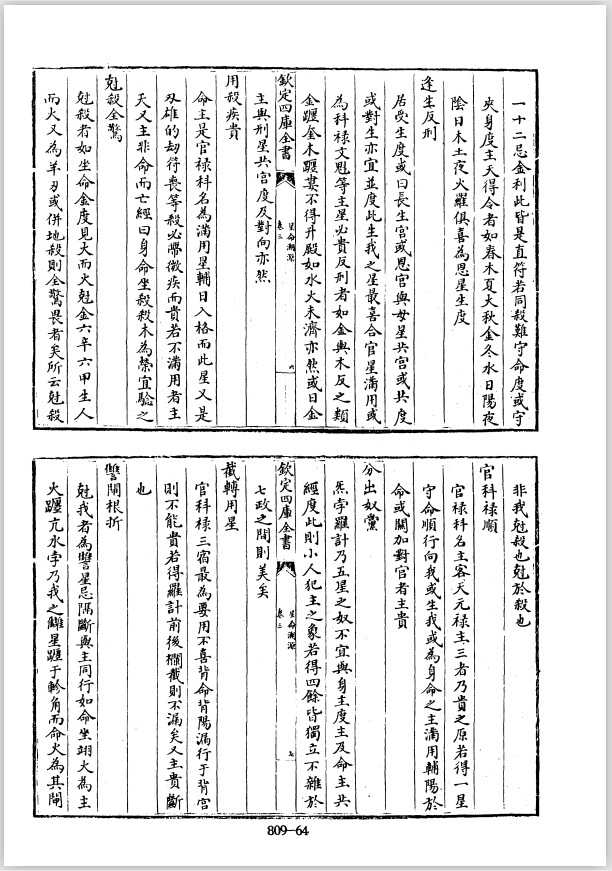 一十二忌金利此皆是直符若同殺難守命度或守
夾身度主天得令者如春木夏火秋金冬水日陽夜
陰日木土夜火羅俱喜為恩星生度
逢生反刑
居受生度或曰長生宮或恩宮與母星共宮或共度
或對生亦宜並度此生我之星最喜合官星滿用或
為科祿文魁等主星必貴反刑者如金與木反之類
金躔奎木躔婁不得升殿如水火未濟亦然或日金
欽定四庫全書
星命溯源
卷三
六
主與刑星共宮度及對向亦然
用殺疾貴
命主是官祿科名為滿用星輔日入格而此星又是
刃雄的劫符喪等殺必帶微疾而貴若不滿用者主
夭又主非命而亡經曰身命坐殺殺木為榮宜驗之
尅殺全驚
尅殺者如坐命金度見火而火尅金六辛六甲生人
而火又為羊刃或併地殺則全驚畏者矣所云尅殺
非我尅殺也尅於殺也
官科祿順
官祿科名主客天元祿主三者乃貴之原若得一星
守命順行向我或生我或為身命之主滿用輔陽於
命或關加對官者主貴
分出奴黨
炁孛羅計乃五星之奴不宜與身主度主及命主共
經度此則小人犯主之象若得四餘皆獨立不雜於
欽定四庫全書
星命溯源
卷三
七
七政之間則美矣
截轉用星
官科祿三宿最為要用不喜背命背陽漏行于背宮
則不能貴若得羅計前後攔截則不漏矣又主貴斷
也
讐闘根折
尅我者為讐星忌隔斷與主同行如命坐翊火為主
火躔亢水孛乃我之讎星躔于軫角而命火為其闘
809-64